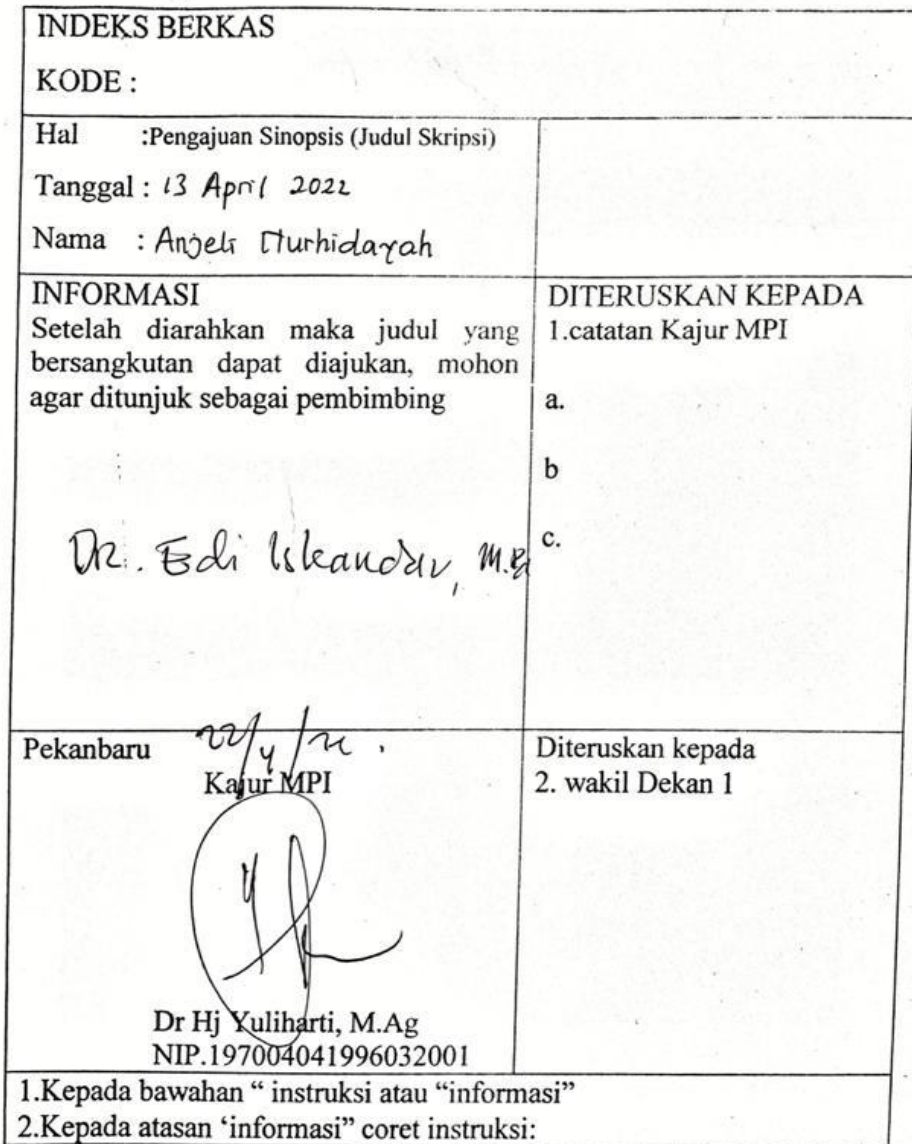 INDEKS BERKAS
KODE :
Hal :Pengajuan Sinopsis (Judul Skripsi)
Tanggal : 13 April 2022
Nama : Anjeli Nurhidayah
INFORMASI
Setelah diarahkan maka judul yang
bersangkutan dapat diajukan, mohon
agar ditunjuk sebagai pembimbing
Dr. Edi Iskandar,
DITERUSKAN KEPADA
1.catatan Kajur MPI
a.
b
c.
Pekanbaru 22/4/22.
Kajur MPI
Dr Hj Yuliharti, M.Ag
NIP.197004041996032001
Diteruskan kepada
2. wakil Dekan 1
1.Kepada bawahan “ instruksi atau “informasi”
2.Kepada atasan ‘informasi” coret instruksi: